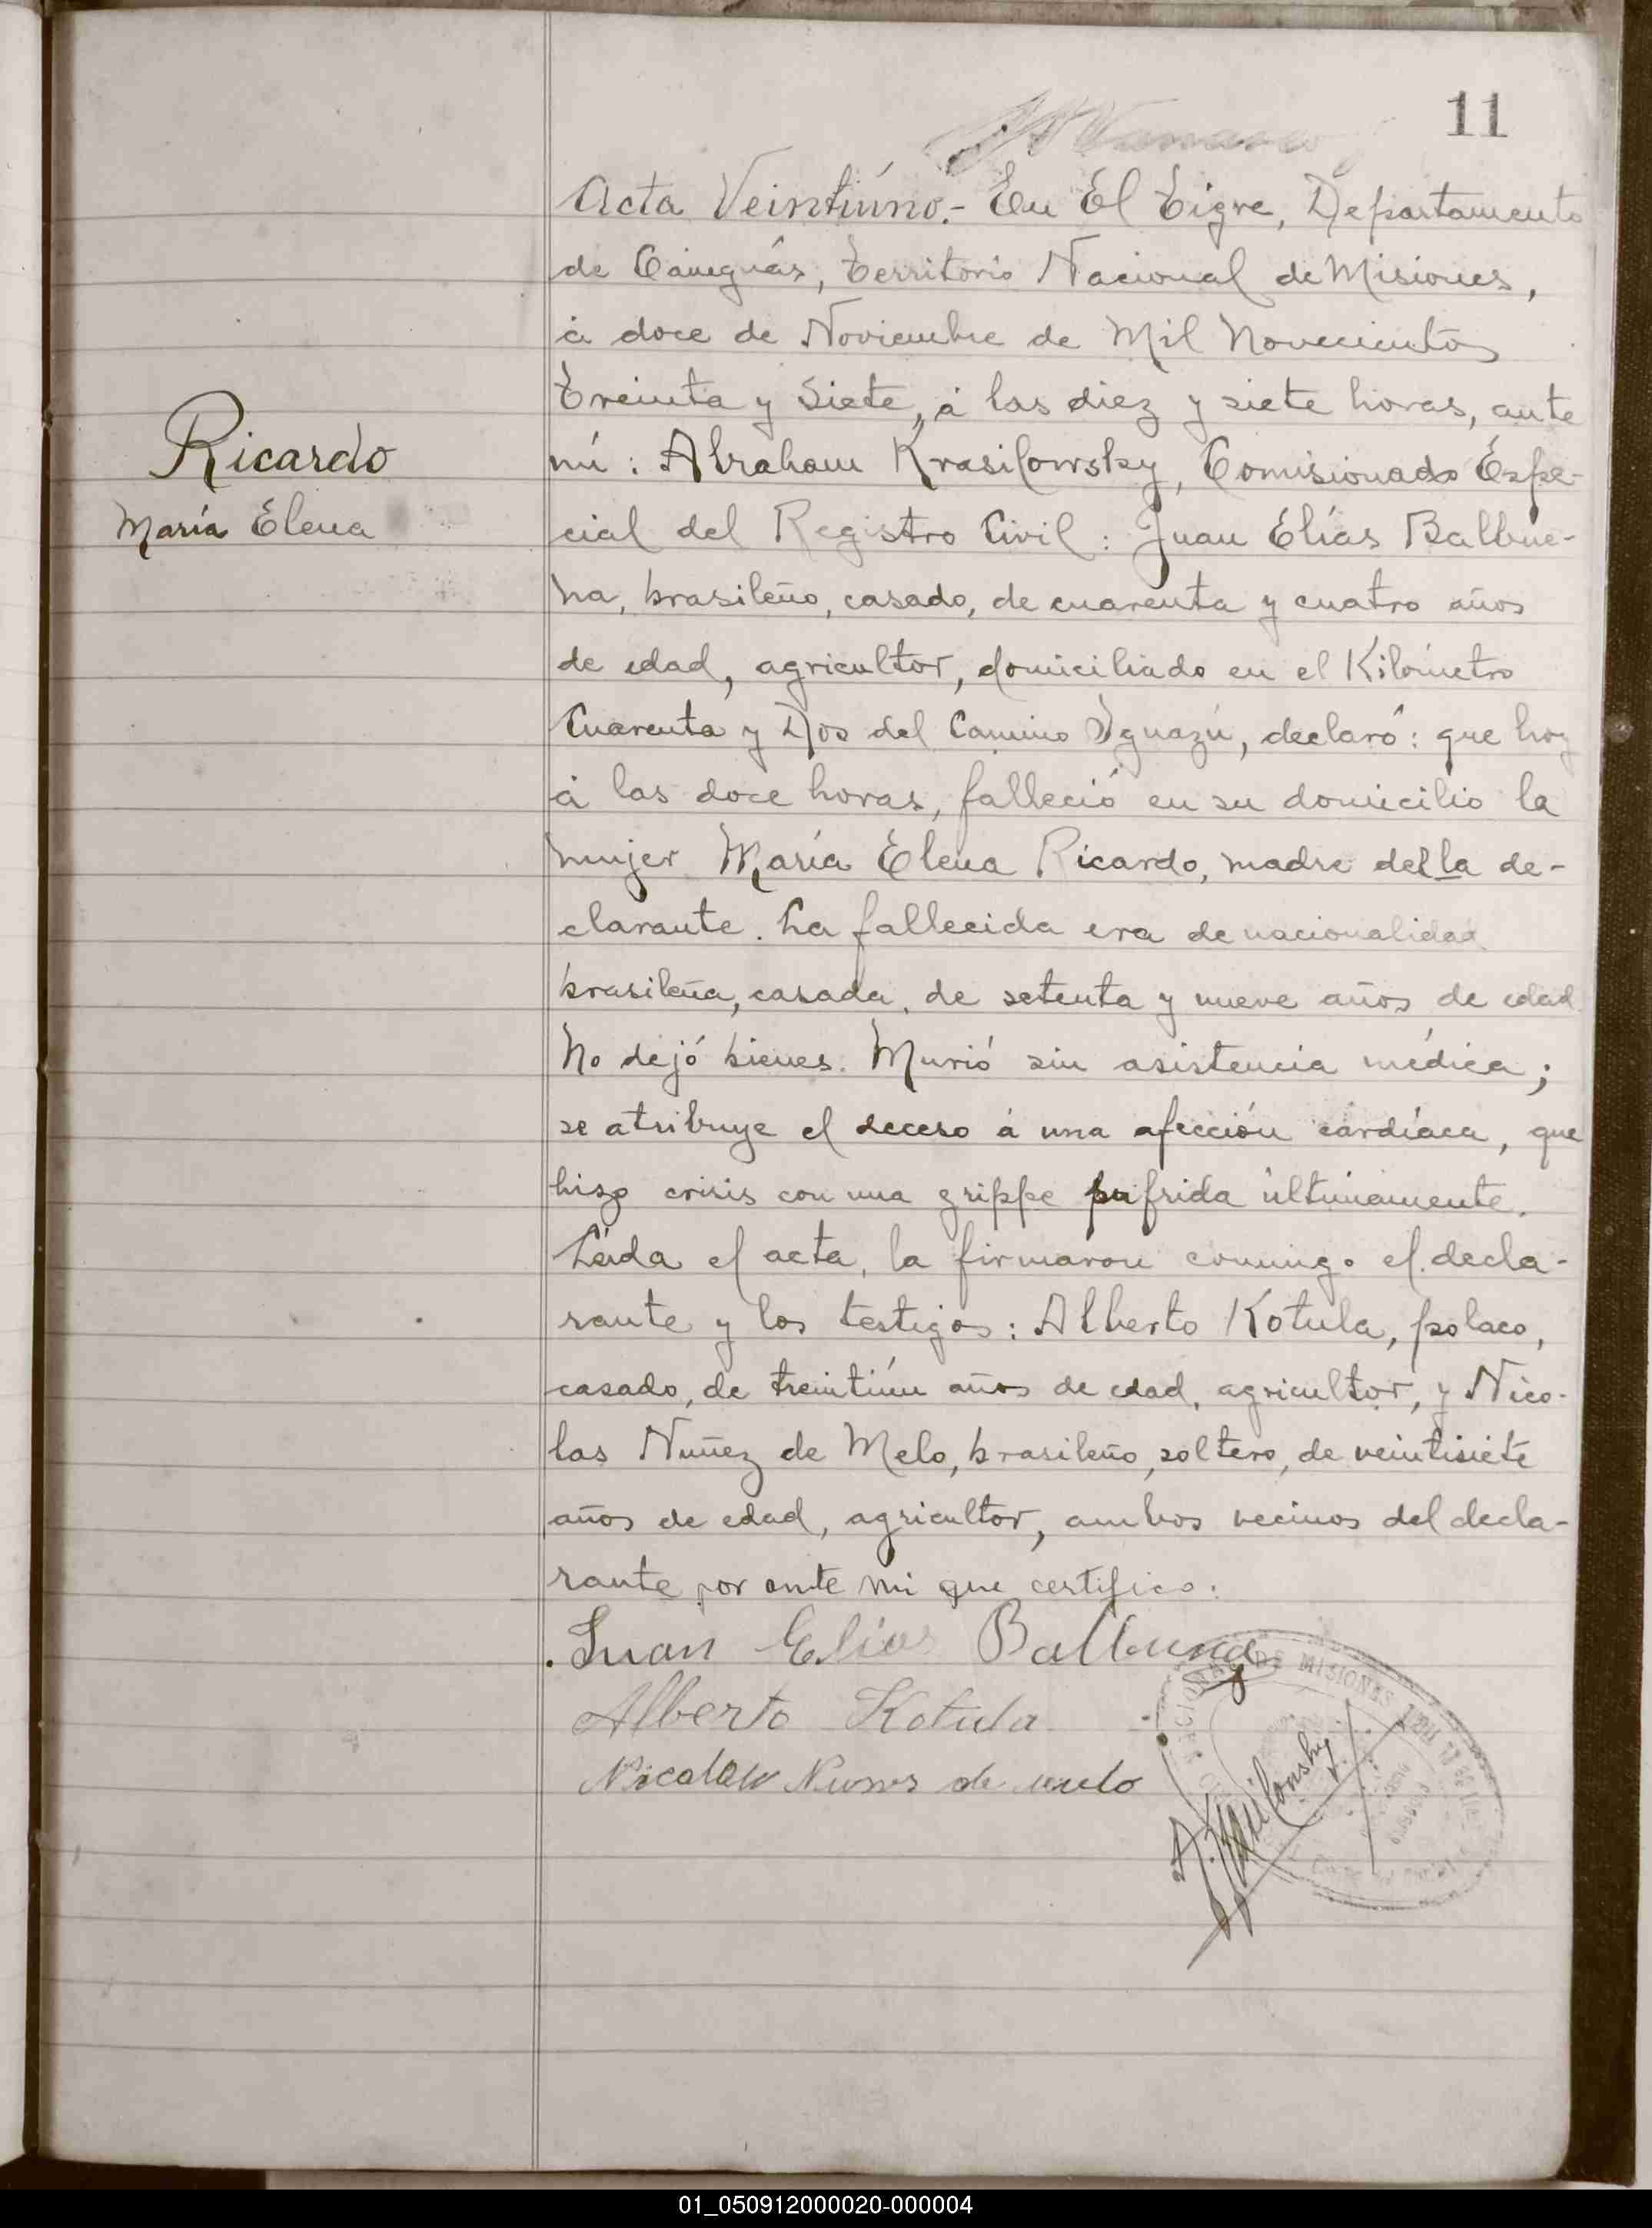 11
Acta Veintiúno.- En El Tigre, Departamento
de Caineguás, Territorio Nacional de Misiones,
á doce de Noviembre de Mil Novecientos
Treinta y Siete, á las diez y siete horas, ante
Ricardo
mí: Abraham Krasilowsky, Comisionado Espe-
María Elena
cial del Registro Civil: Juan Elías Balbue-
na, brasileño, casado, de cuarenta y cuatro años
de edad, agricultor, domiciliado en el Kilómetro
Cuarenta y Dos del Camino Yguazú, declaró: que hoy
á las doce horas, falleció en su domicilio la
mujer María Elena Ricardo, madre del la de-
clarante. La fallecida era de nacionalidad
brasileña, casada, de setenta y nueve años de edad
No dejó bienes. Murió sin asistencia médica;
se atribuye el deceso á una afección cárdíaca, que
hizo crisis con una grippe sufrida últimamente.
Leída el acta, la firmaron conmigo el decla-
rante y los testigos: Alberto Kotula, polaco,
casado, de treintiún años de edad, agricultor, y Nico-
las Nuñez de Melo, brasileño, soltero, de veintisiete
años de edad, agricultor, ambos vecinos del decla-
rante por ante mi que certifico.
Juan Elias Balbuena
Alberto Kotula
Nicolau Nunes de melo
NACIONAL DE MISIONES
A. Krasilowsky
01_050912000020-000004